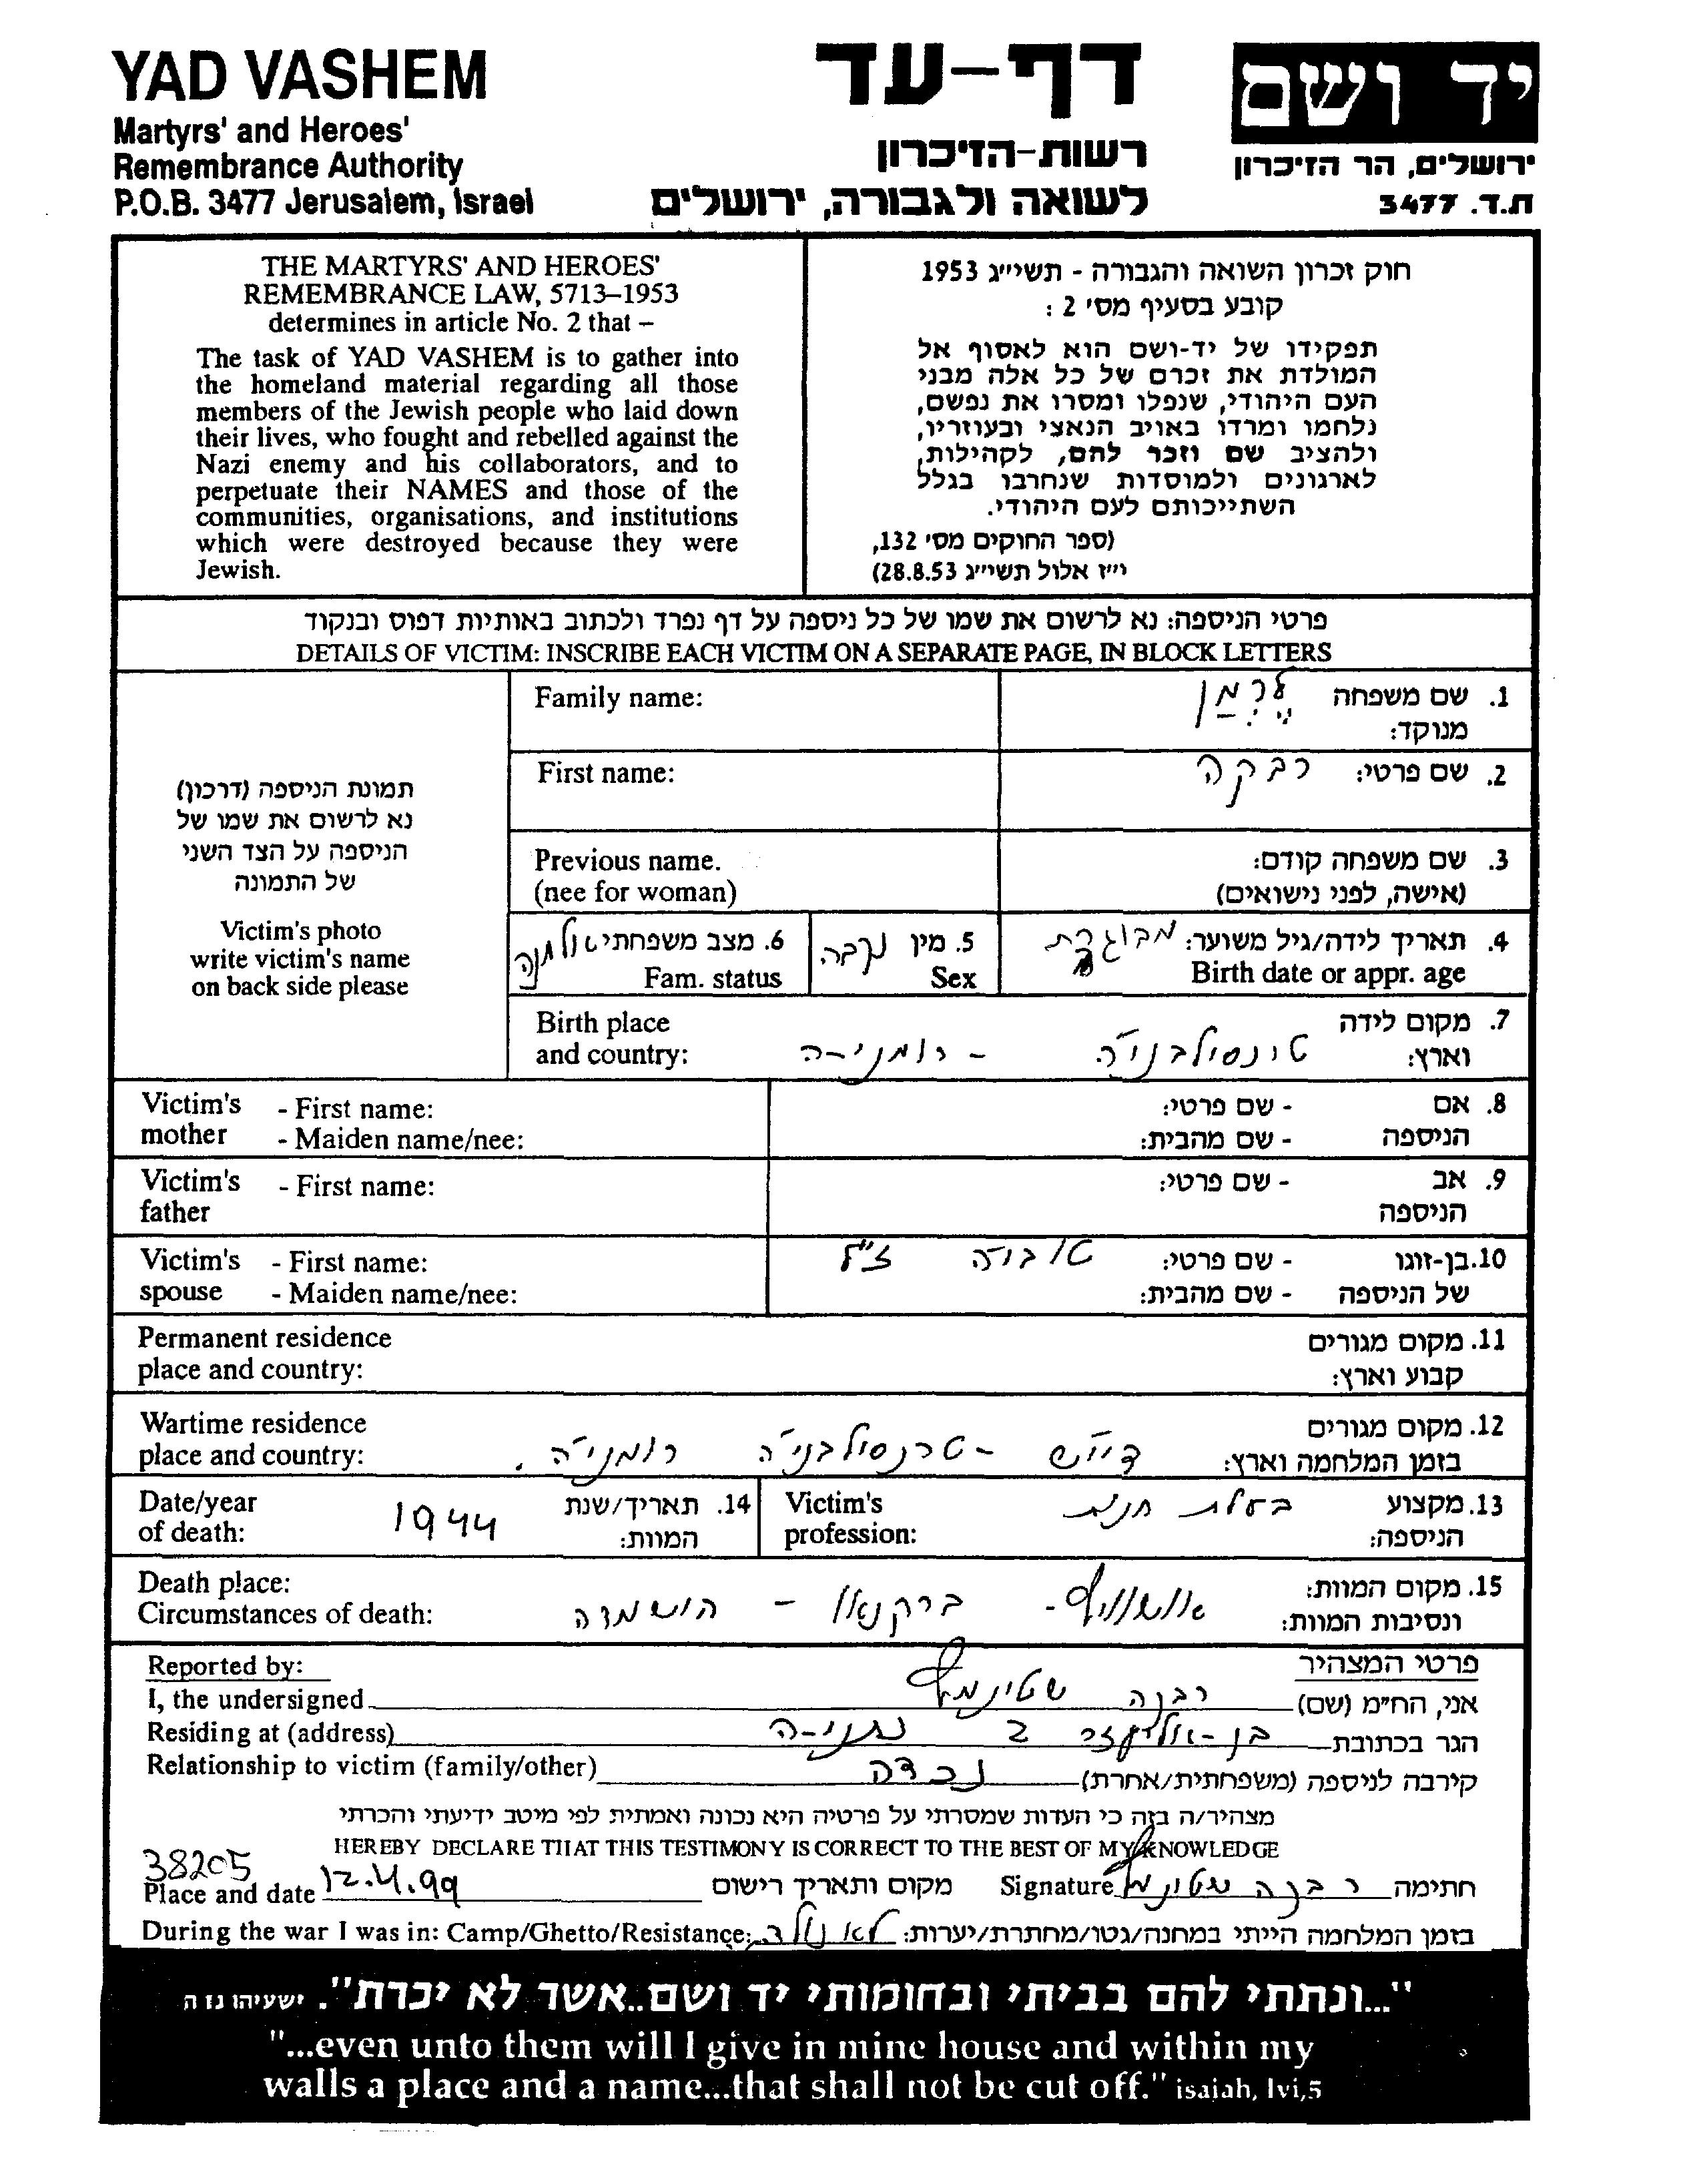 YAD VASHEM
Martyrs' and Heroes'
Remembrance Authority
P.O.B. 3477 Jerusalem, Israel
דף-עד
רשות-הזיכרון
לשואה ולגבורה, ירושלים
יד ושם
ירושלים, הר הזיכרון
ת.ד. 3477
THE MARTYRS' AND HEROES'
REMEMBRANCE LAW, 5713–1953
determines in article No. 2 that –
The task of YAD VASHEM is to gather into
the homeland material regarding all those
members of the Jewish people who laid down
their lives, who fought and rebelled against the
Nazi enemy and his collaborators, and to
perpetuate their NAMES and those of the
communities, organisations, and institutions
which were destroyed because they were
Jewish.
חוק זכרון השואה והגבורה - תשי״ג 1953
קובע בסעיף מס׳ 2 :
תפקידו של יד-ושם הוא לאסוף אל
המולדת את זכרם של כל אלה מבני
העם היהודי, שנפלו ומסרו את נפשם,
נלחמו ומרדו באויב הנאצי ובעוזריו,
ולהציב שם וזכר להם, לקהילות,
לארגונים ולמוסדות שנחרבו בגלל
השתייכותם לעם היהודי.
(ספר החוקים מס׳ 132,
י״ז אלול תשי״ג 28.8.53)
פרטי הניספה: נא לרשום את שמו של כל ניספה על דף נפרד ולכתוב באותיות דפוס ובנקוד
DETAILS OF VICTIM: INSCRIBE EACH VICTIM ON A SEPARATE PAGE, IN BLOCK LETTERS
תמונת הניספה (דרכון)
נא לרשום את שמו של
הניספה על הצד השני
של התמונה
Victim's photo
write victim's name
on back side please
Family name: לרמן 1. שם משפחה
מנוקד:
First name: רבקה 2. שם פרטי:
Previous name. 3. שם משפחה קודם:
(nee for woman) (אישה, לפני נישואים)
4. תאריך לידה/גיל משוער: מבוגרת
Birth date or appr. age
5. מין נקבה
Sex
6. מצב משפחתי אלמנה
Fam. status
Birth place 7. מקום לידה
and country: וארץ: טרנסילבניה - רומניה
Victim's - First name: - שם פרטי: 8. אם
mother - Maiden name/nee: - שם מהבית: הניספה
Victim's - First name: - שם פרטי: 9. אב
father הניספה
Victim's - First name: 10. בן-זוגו - שם פרטי: טוביה ז"ל
spouse - Maiden name/nee: - שם מהבית: של הניספה
Permanent residence 11. מקום מגורים
place and country: קבוע וארץ:
Wartime residence 12. מקום מגורים
place and country: בזמן המלחמה וארץ: דיש - טרנסילבניה רומניה.
Date/year 14. תאריך/שנת
of death: 1944 המוות:
Victim's 13. מקצוע
profession: הניספה: בעלת חנות
Death place: 15. מקום המוות:
Circumstances of death: ונסיבות המוות: אושוויץ - ברקנאו - הושמדה
Reported by: פרטי המצהיר
I, the undersigned אני, הח״מ (שם) רבקה שטינמץ
Residing at (address) הגר בכתובת בן-אליעזר 2 נתניה
Relationship to victim (family/other) קירבה לניספה (משפחתית/אחרת) נכדה
מצהיר/ה בזה כי העדות שמסרתי על פרטיה היא נכונה ואמתית לפי מיטב ידיעתי והכרתי
HEREBY DECLARE THAT THIS TESTIMONY IS CORRECT TO THE BEST OF MY KNOWLEDGE
38205
Place and date 12.4.99 מקום ותאריך רישום Signature רבקה שטינמץ חתימה
During the war I was in: Camp/Ghetto/Resistance: בזמן המלחמה הייתי במחנה/גטו/מחתרת/יערות: לא נולד
"...ונתתי להם בביתי ובחומותי יד ושם..אשר לא יכרת". ישעיהו נו ה
"...even unto them will I give in mine house and within my
walls a place and a name...that shall not be cut off." isaiah, lvi,5